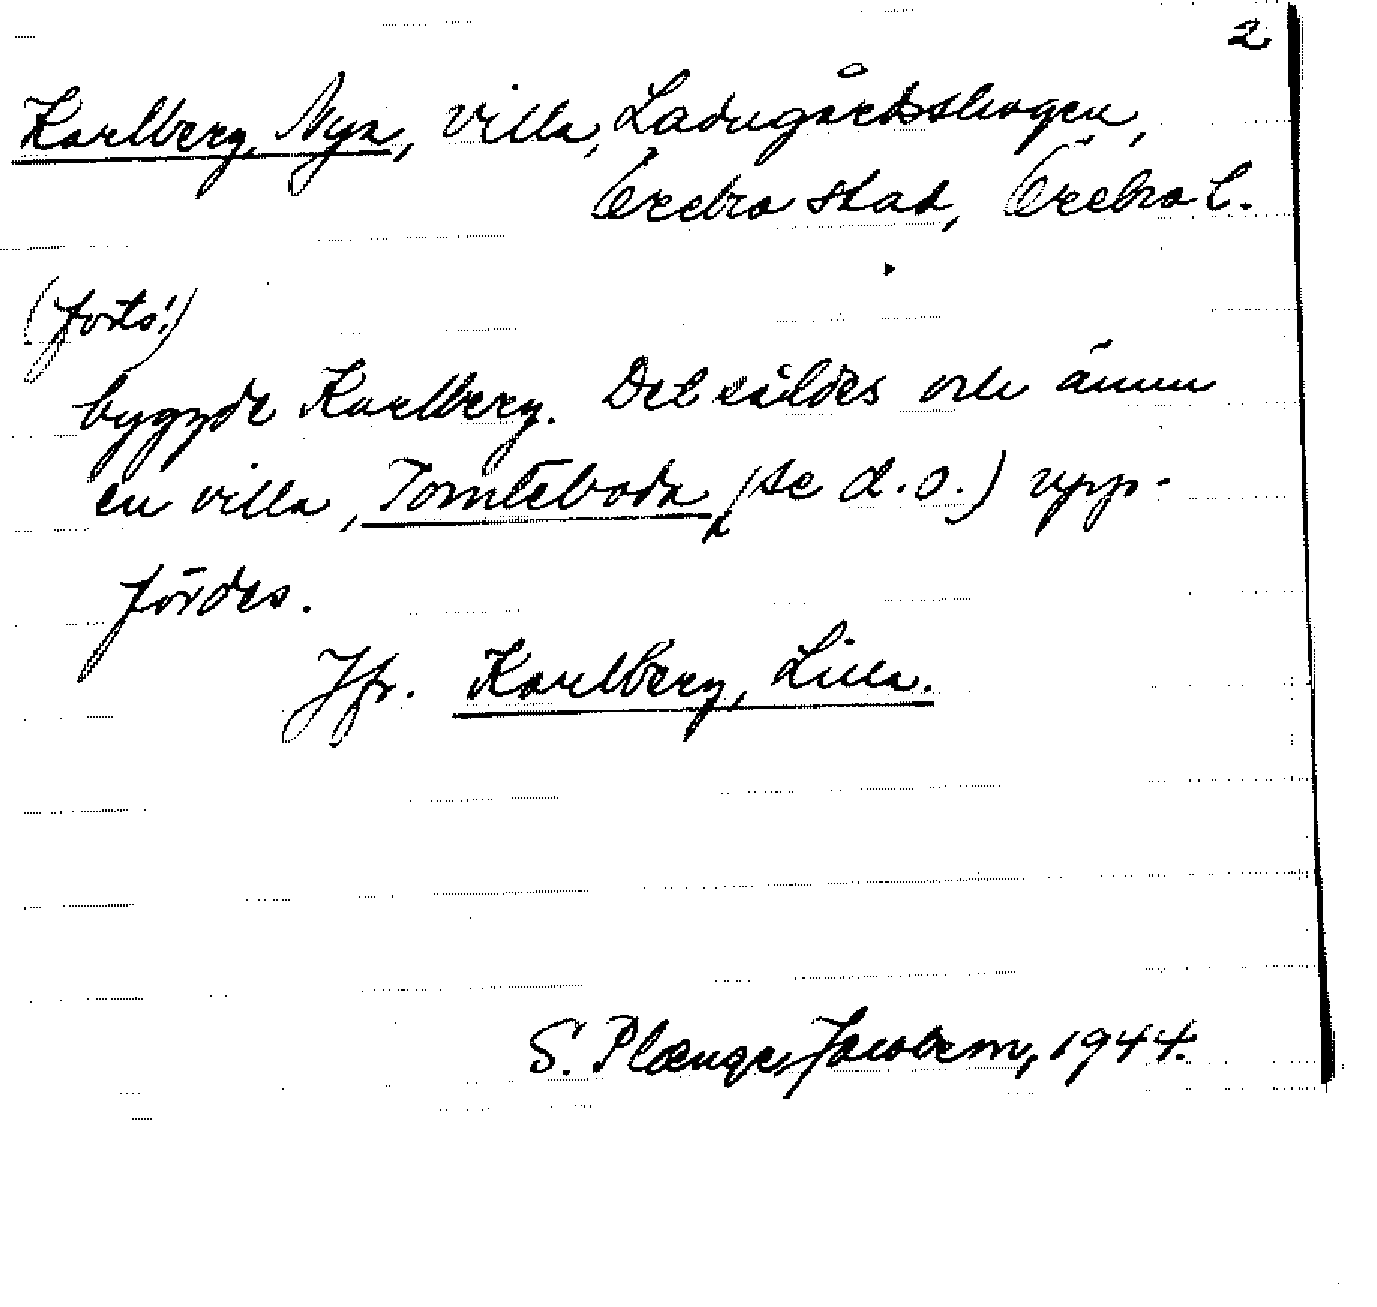 2
Karlberg, Nya, villa, Ladugårdsskogen,
Örebro stad, Örebro l.
(forts.)
byggde Karlberg. Det såldes och ännu
en villa, Tomteboda (se d.o.) upp-
fördes.
Jfr. Karlberg, Lilla.
S. Plænge Jacobson, 1944.